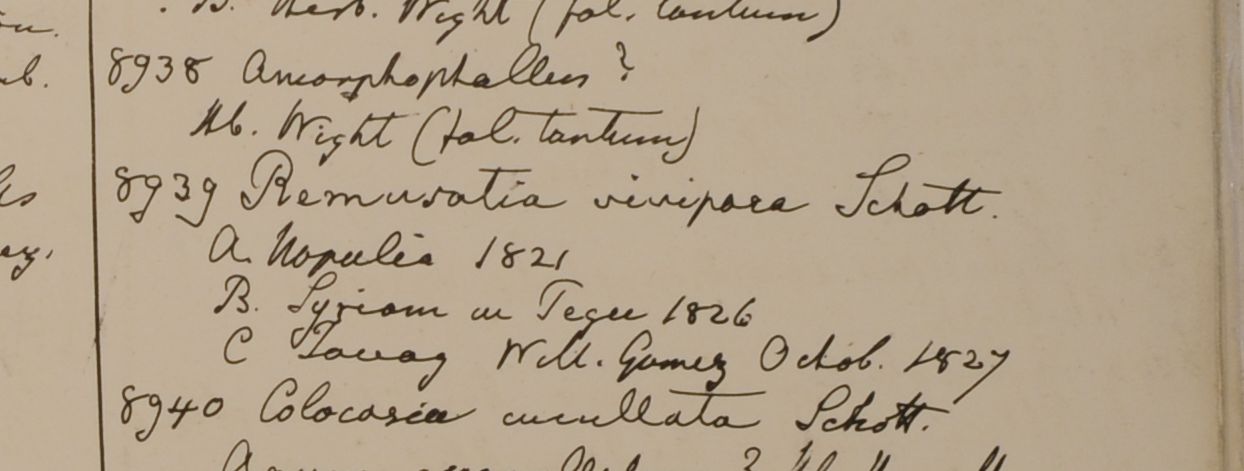 B. Herb. Wight (fol. tantum)
8938 Amorphophallus?
Hb. Wight (fol. tantum)
8939 Remusatia vivipara Schott.
A. Napalia 1821
B. Syriam in Tegu 1826
C Tavay W.M. Gomez Octob. 1827
8940 Colocasia cucullata Schott.